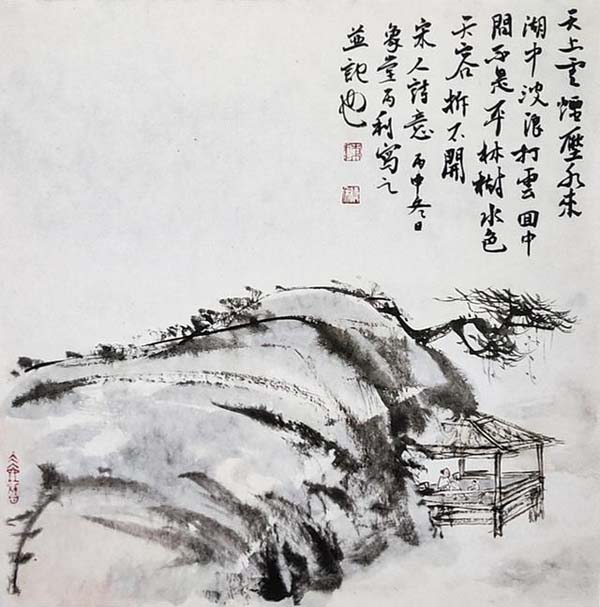 天上雲煙壓水來
湖中波浪打雲回中
間不是平林樹水色
天容拆不開
宋人詩意丙申冬日
象堂丙利寫之
並記也